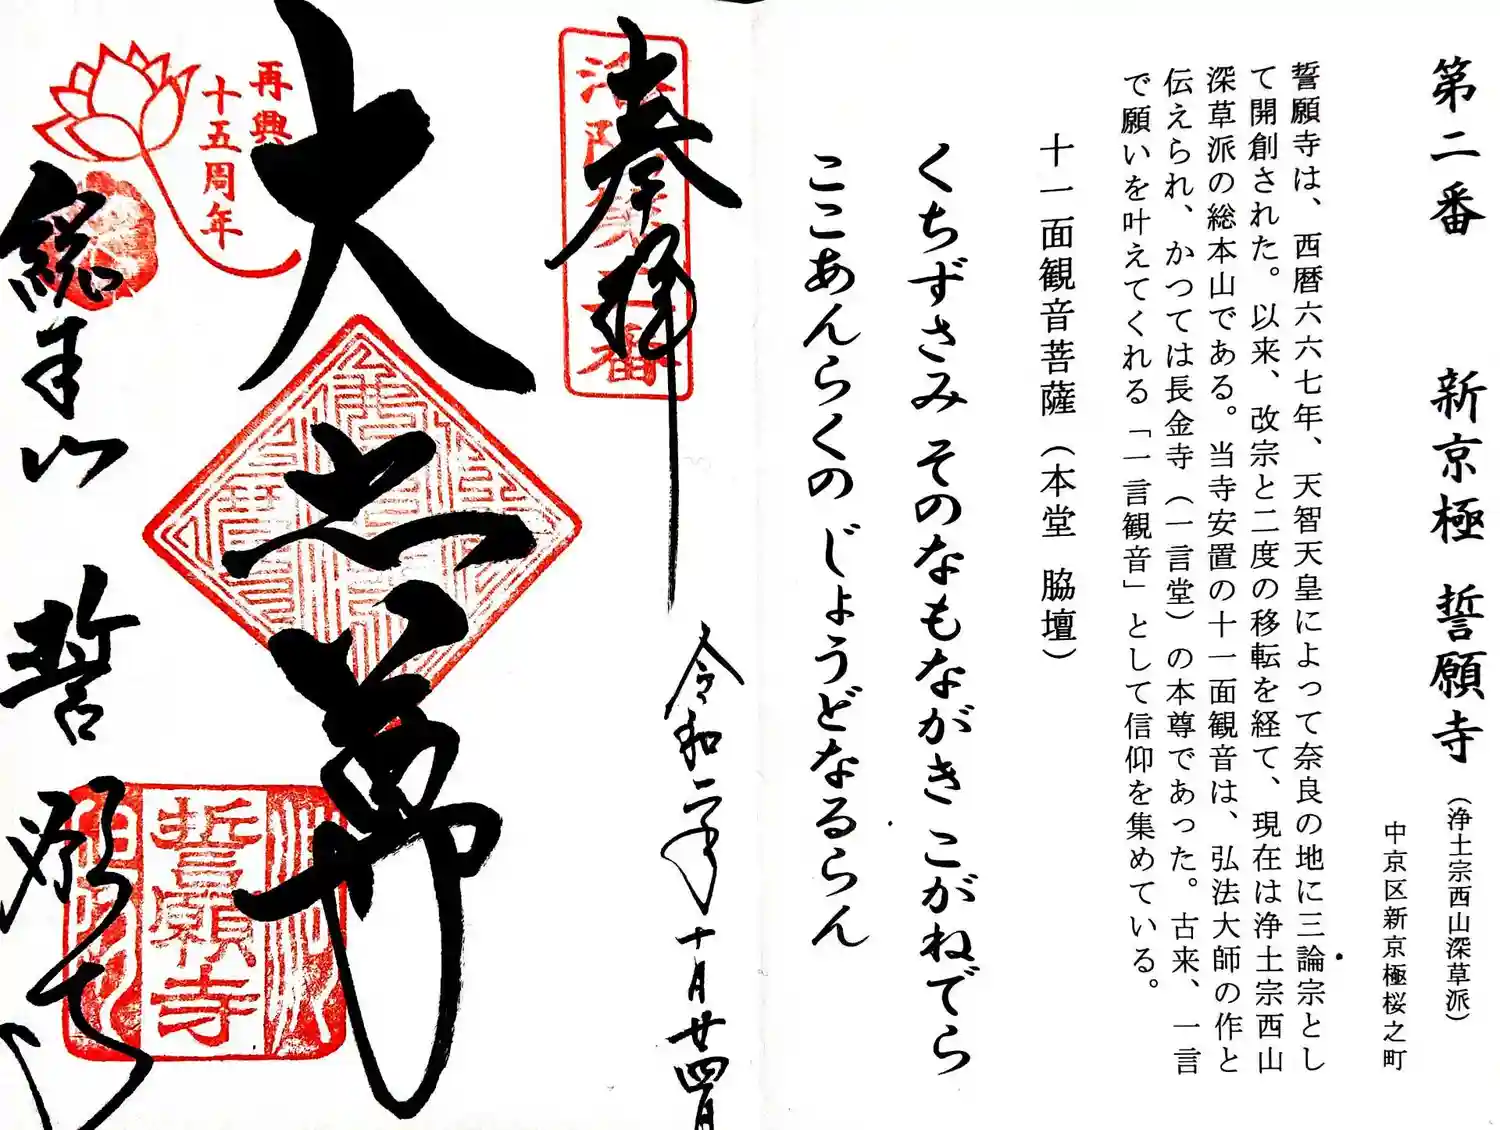 第二番 新京極 誓願寺(浄土宗西山深草派)
中京区新京極桜之町
誓願寺は、西暦六六七年、天智天皇によって奈良の地に三論宗とし
て開創された。以来、改宗と二度の移転を経て、現在は浄土宗西山
深草派の総本山である。当寺安置の十一面観音は、弘法大師の作と
伝えられ、かつては長金寺(一言堂)の本尊であった。古来、一言
で願いを叶えてくれる「一言観音」として信仰を集めている。
十一面観音菩薩(本堂 脇壇)
くちずさみ そのなもながき こがねでら
ここあんらくの じょうどなるらん
奉拝
令和二年十月廿四日
洛陽第二番
大悲尊
再興
十五周年
総本山 誓願寺
誓願寺